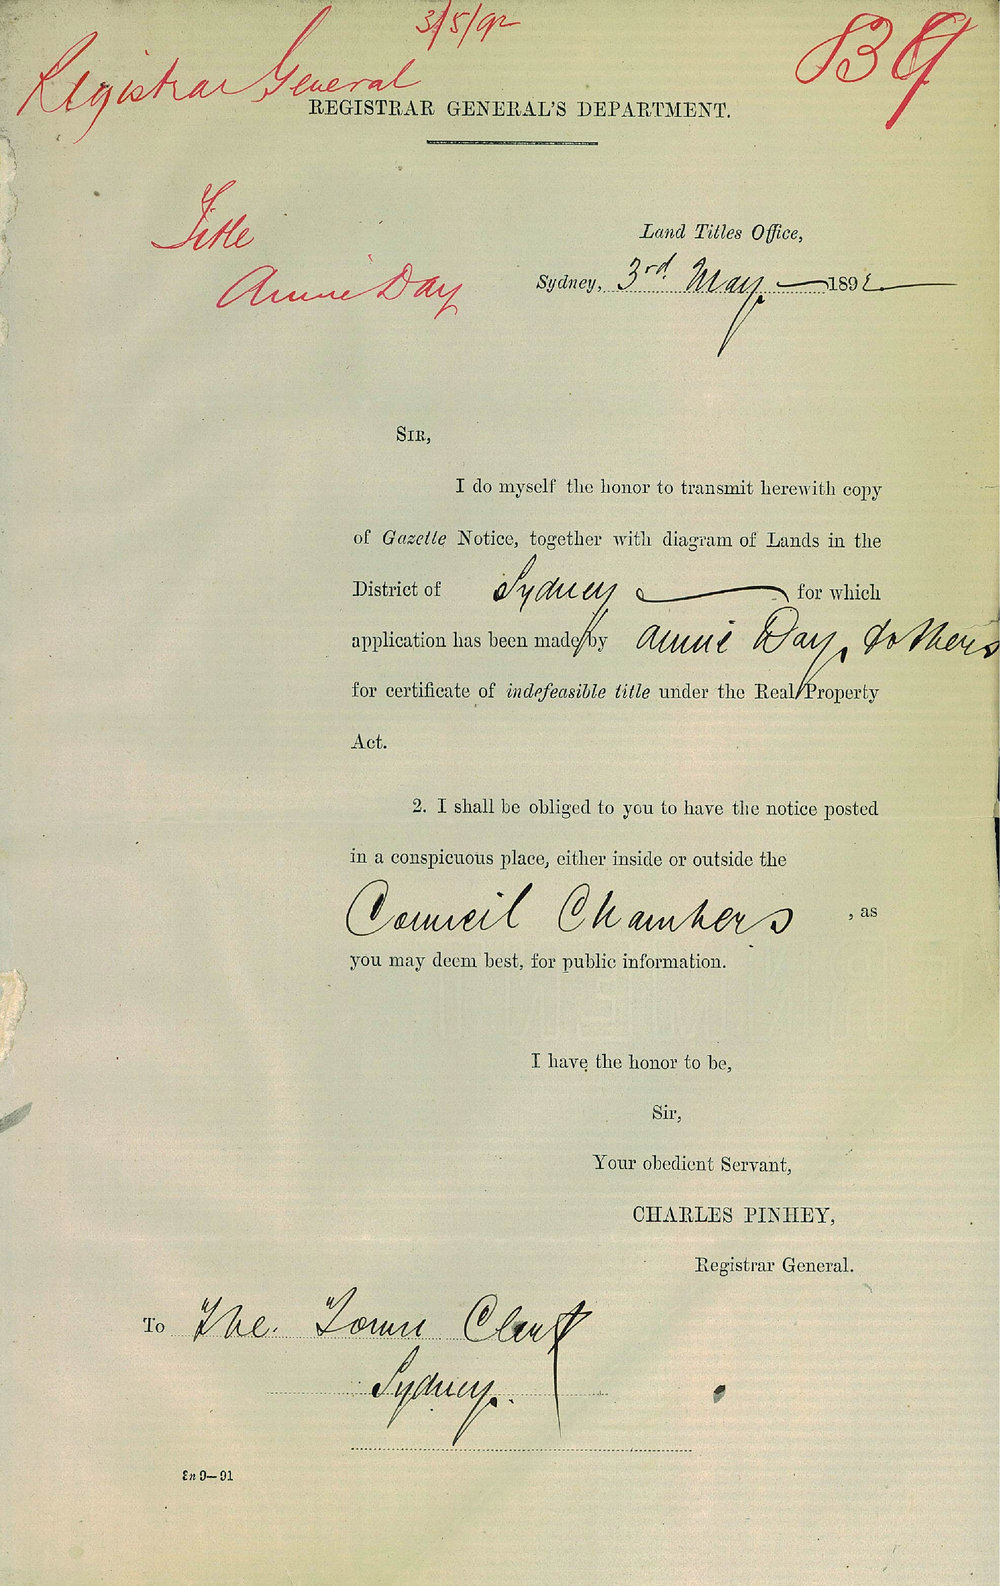 3/5/92
839
Registrar General
REGISTRAR GENERAL'S DEPARTMENT.
Title
Annie Day
Land Titles Office,
Sydney, 3rd. May 1892.
SIR,
I do myself the honor to transmit herewith copy
of Gazette Notice, together with diagram of Lands in the
District of Sydney for which
application has been made by Annie Day, & others
for certificate of indefeasible title under the Real Property
Act.
2. I shall be obliged to you to have the notice posted
in a conspicuous place, either inside or outside the
Council Chambers, as
you may deem best, for public information.
I have the honor to be,
Sir,
Your obedient Servant,
CHARLES PINHEY,
Registrar General.
To The Town Clerk
Sydney.
9—91